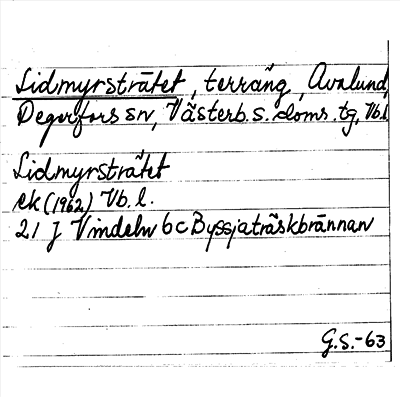 Lidmyrstråtet, terräng, Avalund,
Degerfors sn, Västerb. s. doms. tg, Vb.l
Lidmyrstråtet
ek (1962) Vb. l.
21 J Vindeln 6c Byssjaträskbrännan
G.S.-63